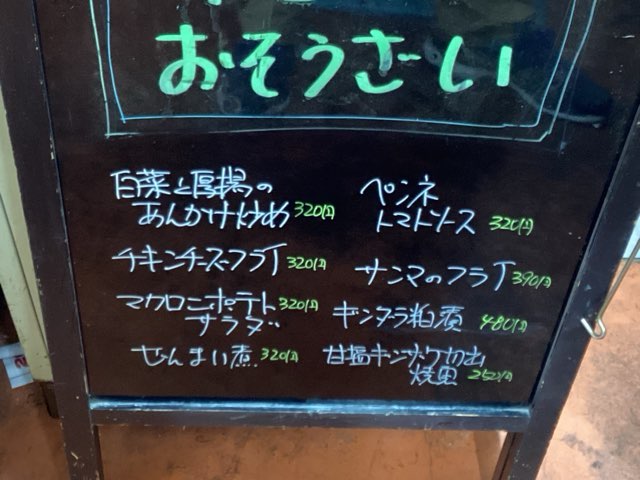 おそうざい
白菜と厚揚の
あんかけ炒め 320円
チキンチーズフライ 320円
マカロニポテト 320円
サラダ
ぜんまい煮 320円
ペンネ
トマトソース 320円
サンマのフライ 390円
ギンダラ粕煮 480円
甘塩ギンザケ切出
焼魚 252円